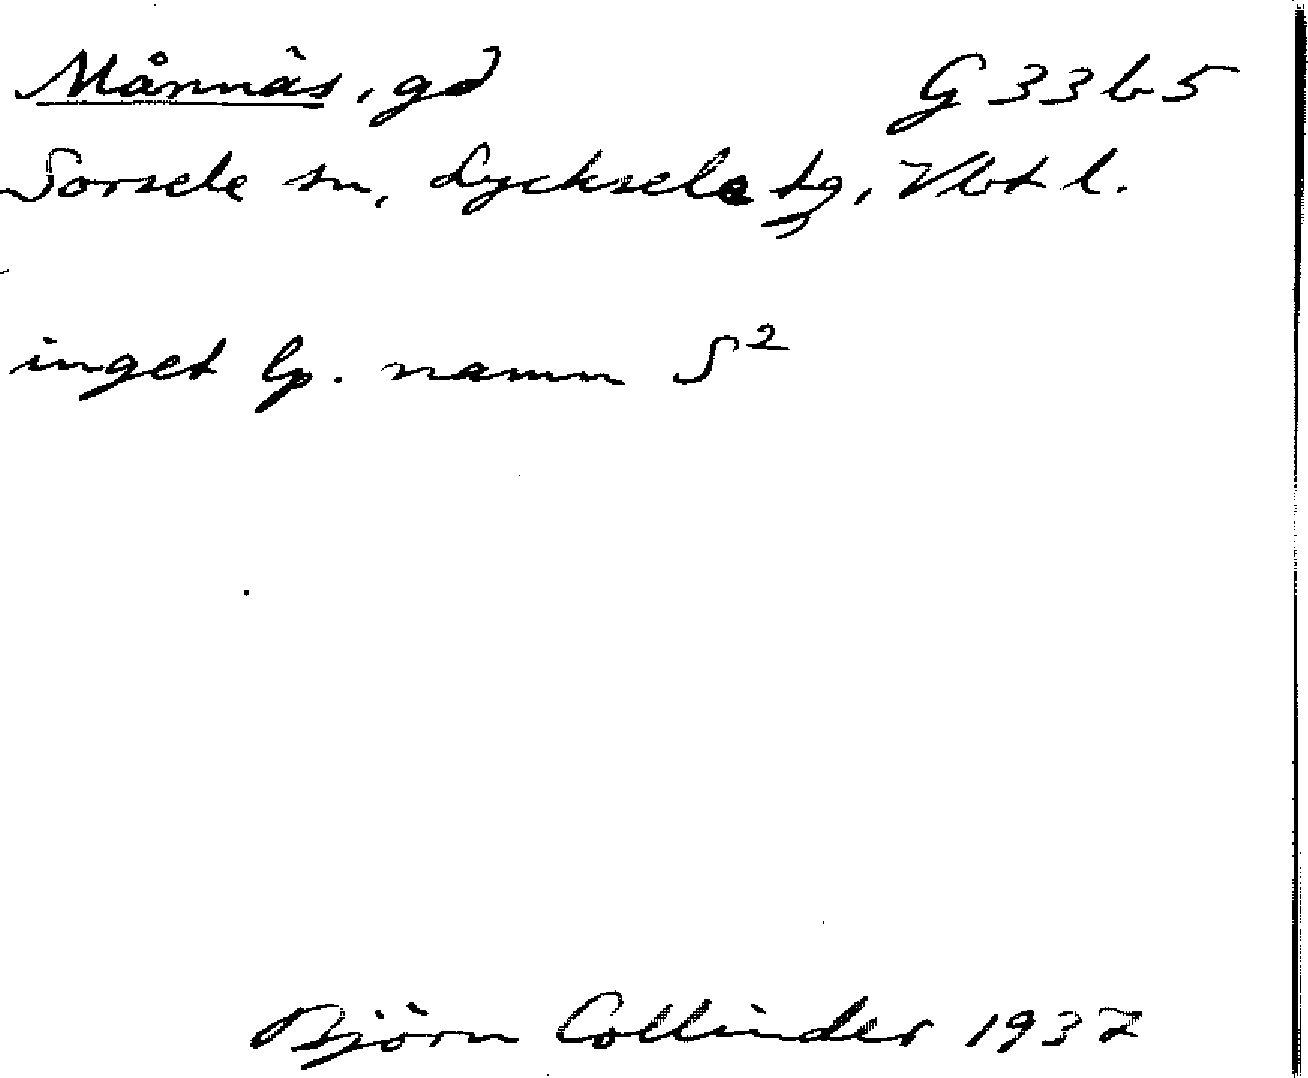 Månnäs, gd G 33 b 5
Sorsele sn, Lycksele tg, Vbt l.
inget lp. namn S²
Björn Collinder 1937